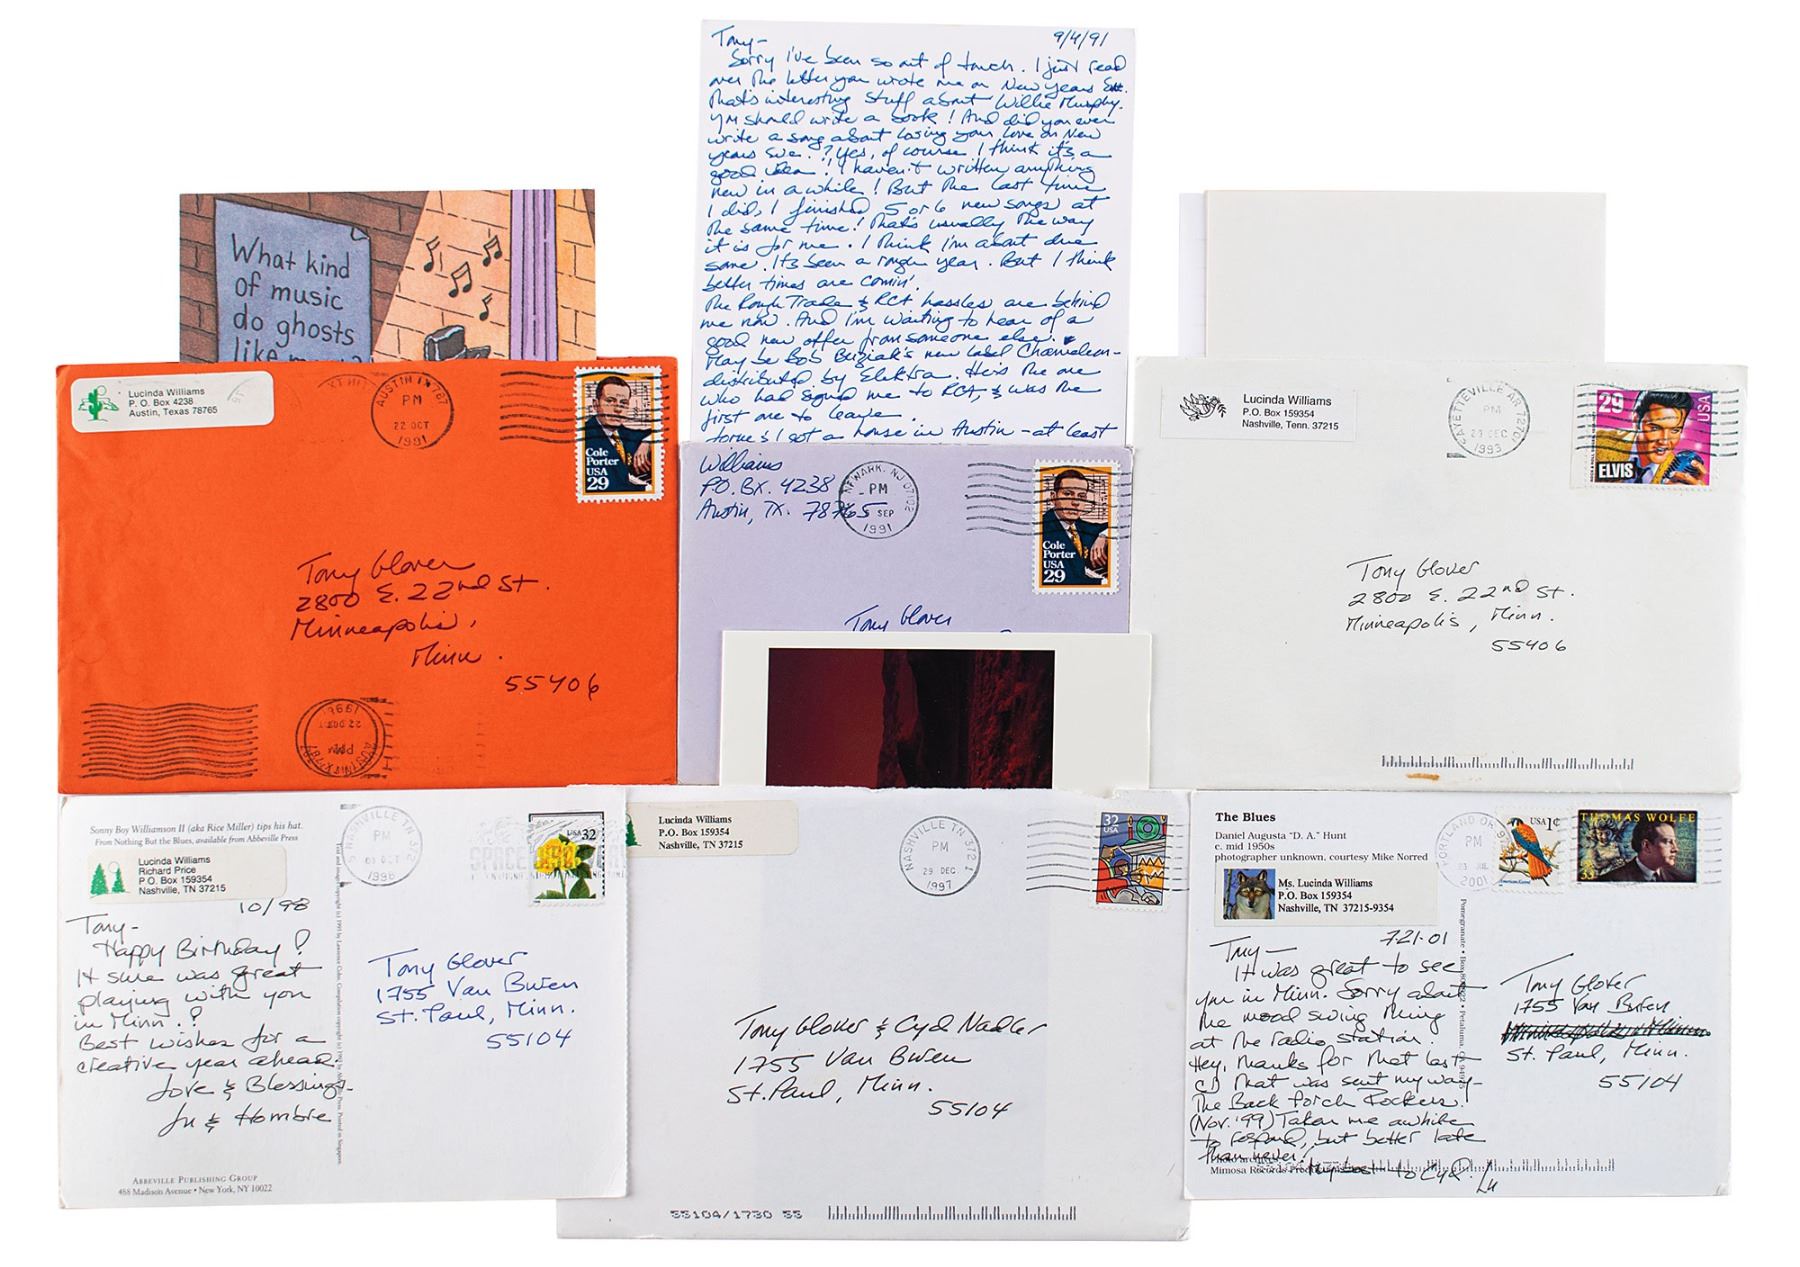 Tony- 9/4/91
Sorry I've been so out of touch. I just read
over the letter you wrote me on New Years Eve.
That's interesting stuff about Willie Murphy.
you should write a book! And did you ever
write a song about losing your love on New
years Eve.? Yes, of course I think it's a
good idea! I haven't written anything
new in a while! But the last time
I did, I finished 5 or 6 new songs at
the same time! That's usually the way
it is for me. I think I'm about due
some. It's been a rough year. But I think
better times are comin'.
The Rough Trade & RCA hassles are behind
me now. And I'm waiting to hear of a
good new offer from someone else.
Maybe Bob Buziak's new label Chameleon-
distributed by Elektra. He's the one
who had signed me to RCA, & was the
first one to leave
& I got a house in Austin - at least
What kind
of music
do ghosts
like
Lucinda Williams
P. O. Box 4238
Austin, Texas 78765
AUSTIN TX 787
PM
22 OCT
1991
Cole
Porter
USA
29
Tony Glover
2800 E. 22nd St.
Minneapolis,
Minn.
55406
AUSTIN TX 787
PM
22 OCT
1991
Williams
P.O. Bx. 4238
Austin, TX. 78765
NEWARK, NJ 07102
PM
5 SEP
1991
Cole
Porter
USA
29
Tony Glover
Lucinda Williams
P.O. Box 159354
Nashville, Tenn. 37215
FAYETTEVILLE AR 72701
PM
DEC
1993
29
USA
ELVIS
Tony Glover
2800 E. 22nd St.
Minneapolis, Minn.
55406
Sonny Boy Williamson II (aka Rice Miller) tips his hat.
From Nothing But the Blues, available from Abbeville Press
Lucinda Williams
Richard Price
P O Box 159354
Nashville, TN 37215
NASHVILLE TN 372
PM
OCT
1998
USA 32
10/98
Tony-
Happy Birthday!
It sure was great
playing with you
in Minn.!
Best wishes for a
creative year ahead
Love & Blessings-
Lu & Hombre
Tony Glover
1755 Van Buren
St. Paul, Minn.
55104
ABBEVILLE PUBLISHING GROUP
488 Madison Avenue • New York, NY 10022
Lucinda Williams
P.O. Box 159354
Nashville, TN 37215
NASHVILLE TN 372
PM
29 DEC
1997
32
USA
Tony Glover & Cyd Nadler
1755 Van Buren
St. Paul, Minn.
55104
55104/1730 55
The Blues
Daniel Augusta "D. A." Hunt
c. mid 1950s
photographer unknown, courtesy Mike Norred
Ms. Lucinda Williams
P.O. Box 159354
Nashville, TN 37215-9354
PORTLAND OR
PM
JUL
2001
USA 1¢
American Kestrel
THOMAS WOLFE
33
7-21-01
Tony-
It was great to see
you in Minn. Sorry about
the mood swing thing
at the radio station.
Hey, thanks for that last
CD that was sent my way-
The Back Porch Rockers.
(Nov. '99) Taken me awhile
to respond, but better late
than never! My best to Cyd.
Lu
Mimosa Records
Tony Glover
1755 Van Buren
St. Paul, Minn.
55104